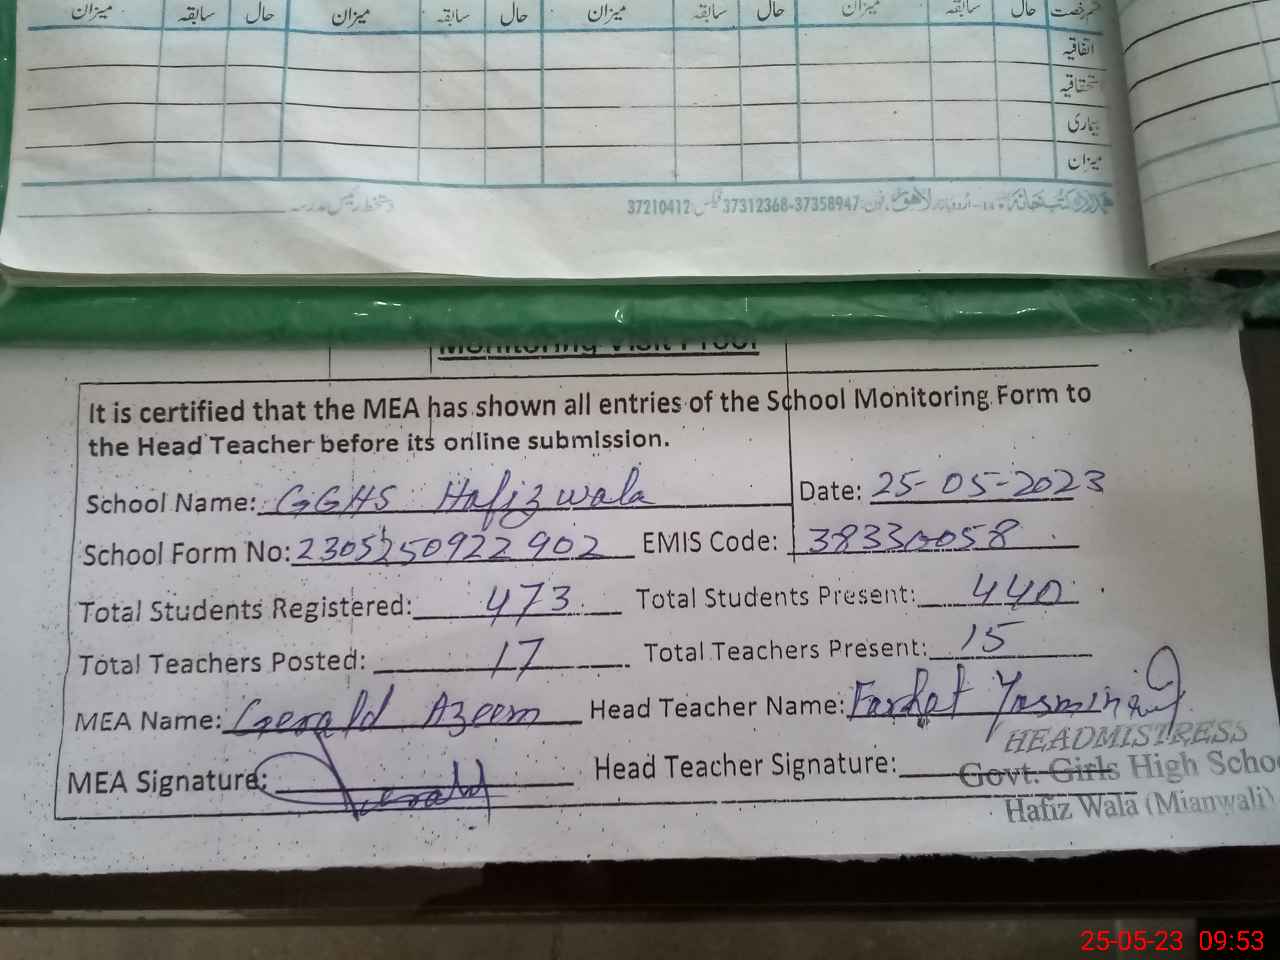 میزان سابقہ حال میزان سابقہ حال میزان سابقہ حال میزان سابقہ حال
اتفاقیہ
بیماری
میزان
37210412 37312368-37358947 لاہور
دستخط رئیس مدرسہ
Monitoring Visit Proof
It is certified that the MEA has shown all entries of the School Monitoring Form to
the Head Teacher before its online submission.
School Name: GGHS Hafiz wala Date: 25-05-2023
School Form No: 2305250922902 EMIS Code: 38330058
Total Students Registered: 473 Total Students Present: 440
Total Teachers Posted: 17 Total Teachers Present: 15
MEA Name: Gerald Azeem Head Teacher Name: Farhat Yasmin
MEA Signature: Gerald Head Teacher Signature:
HEADMISTRESS
Govt. Girls High Schoo
Hafiz Wala (Mianwali)
25-05-23 09:53